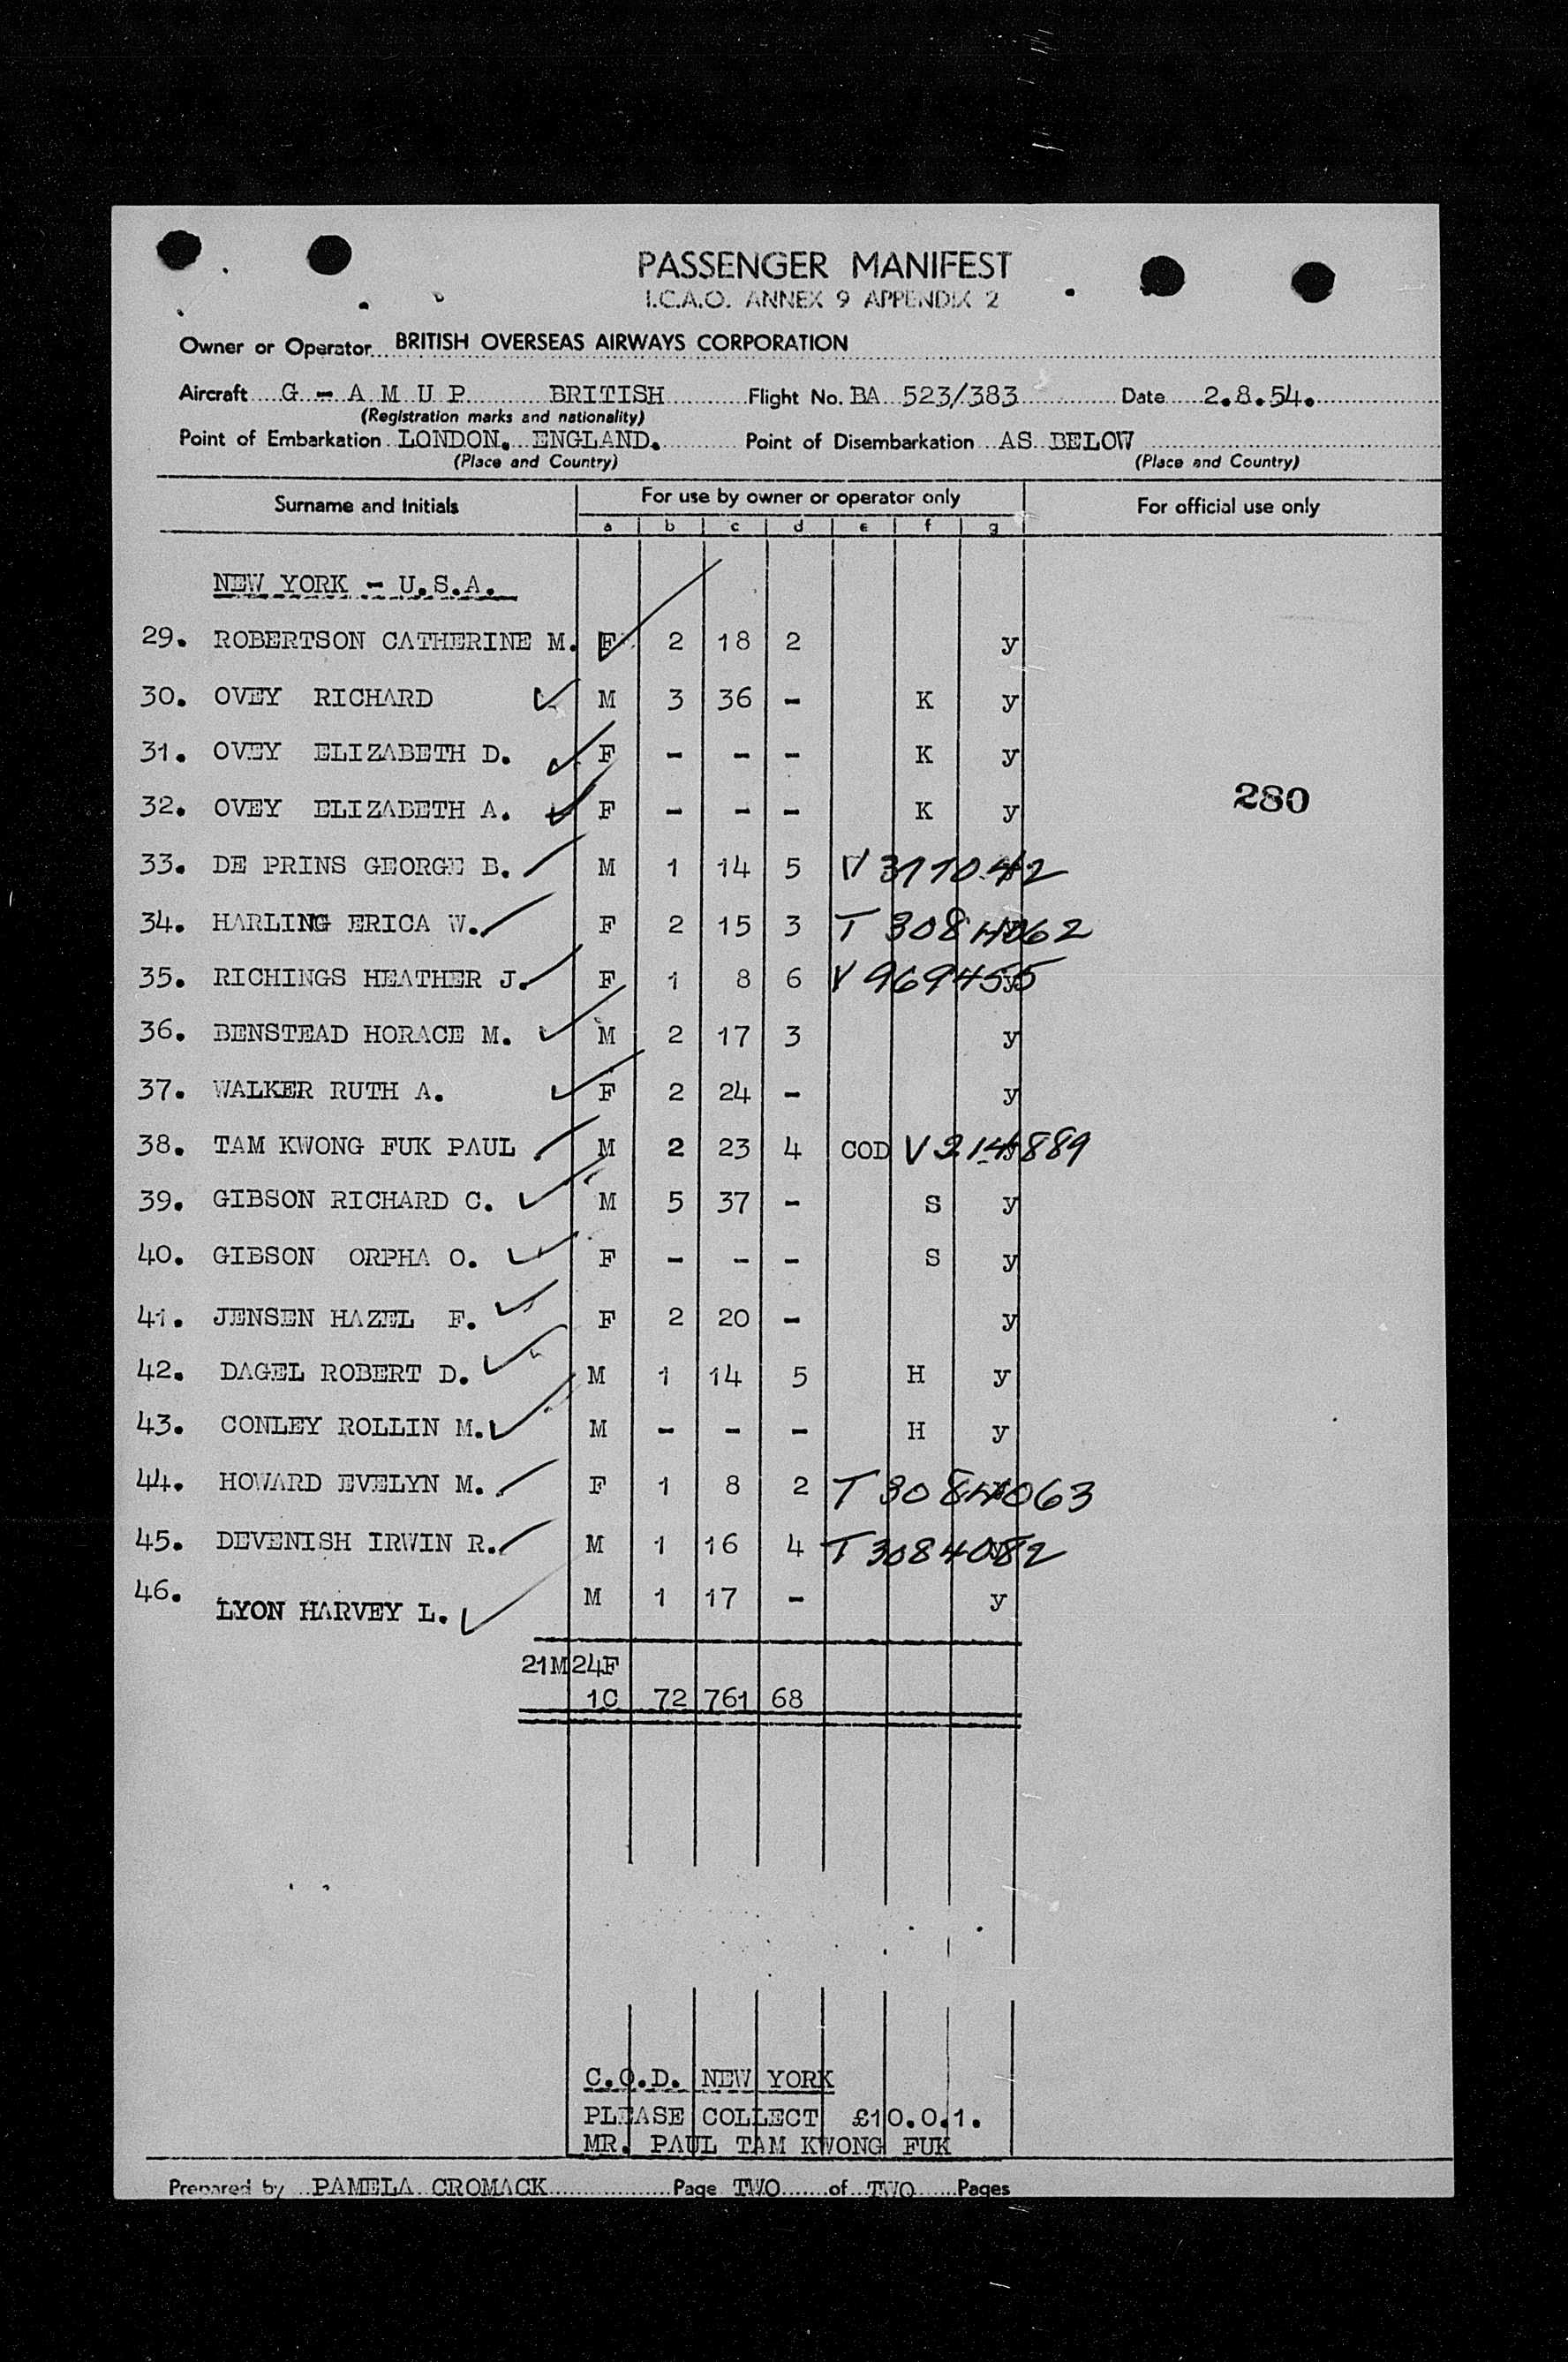 PASSENGER MANIFEST
I.C.A.O. ANNEX 9 APPENDIX 2
Owner or Operator BRITISH OVERSEAS AIRWAYS CORPORATION
Aircraft G - A M U P BRITISH Flight No. BA 523/383 Date 2.8.54.
(Registration marks and nationality)
Point of Embarkation LONDON. ENGLAND. Point of Disembarkation AS BELOW
(Place and Country) (Place and Country)
Surname and Initials For use by owner or operator only For official use only
a b c d e f g
NEW YORK - U.S.A.
29. ROBERTSON CATHERINE M. F 2 18 2 y
30. OVEY RICHARD M 3 36 - K y
31. OVEY ELIZABETH D. F - - - K y
280
32. OVEY ELIZABETH A. F - - - K y
33. DE PRINS GEORGE B. M 1 14 5 V 317042
34. HARLING ERICA W. F 2 15 3 T 3084062
35. RICHINGS HEATHER J. F 1 8 6 V 969455
36. BENSTEAD HORACE M. M 2 17 3 y
37. WALKER RUTH A. F 2 24 - y
38. TAM KWONG FUK PAUL M 2 23 4 COD V 214889
39. GIBSON RICHARD C. M 5 37 - S y
40. GIBSON ORPHA O. F - - - S y
41. JENSEN HAZEL F. F 2 20 - y
42. DAGEL ROBERT D. M 1 14 5 H y
43. CONLEY ROLLIN M. M - - - H y
44. HOWARD EVELYN M. F 1 8 2 T 3084063
45. DEVENISH IRWIN R. M 1 16 4 T 3084082
46. LYON HARVEY L. M 1 17 - y
21M 24F
1C 72 761 68
C.O.D. NEW YORK
PLEASE COLLECT £10.0.1.
MR. PAUL TAM KWONG FUK
Prepared by PAMELA CROMACK Page TWO of TWO Pages